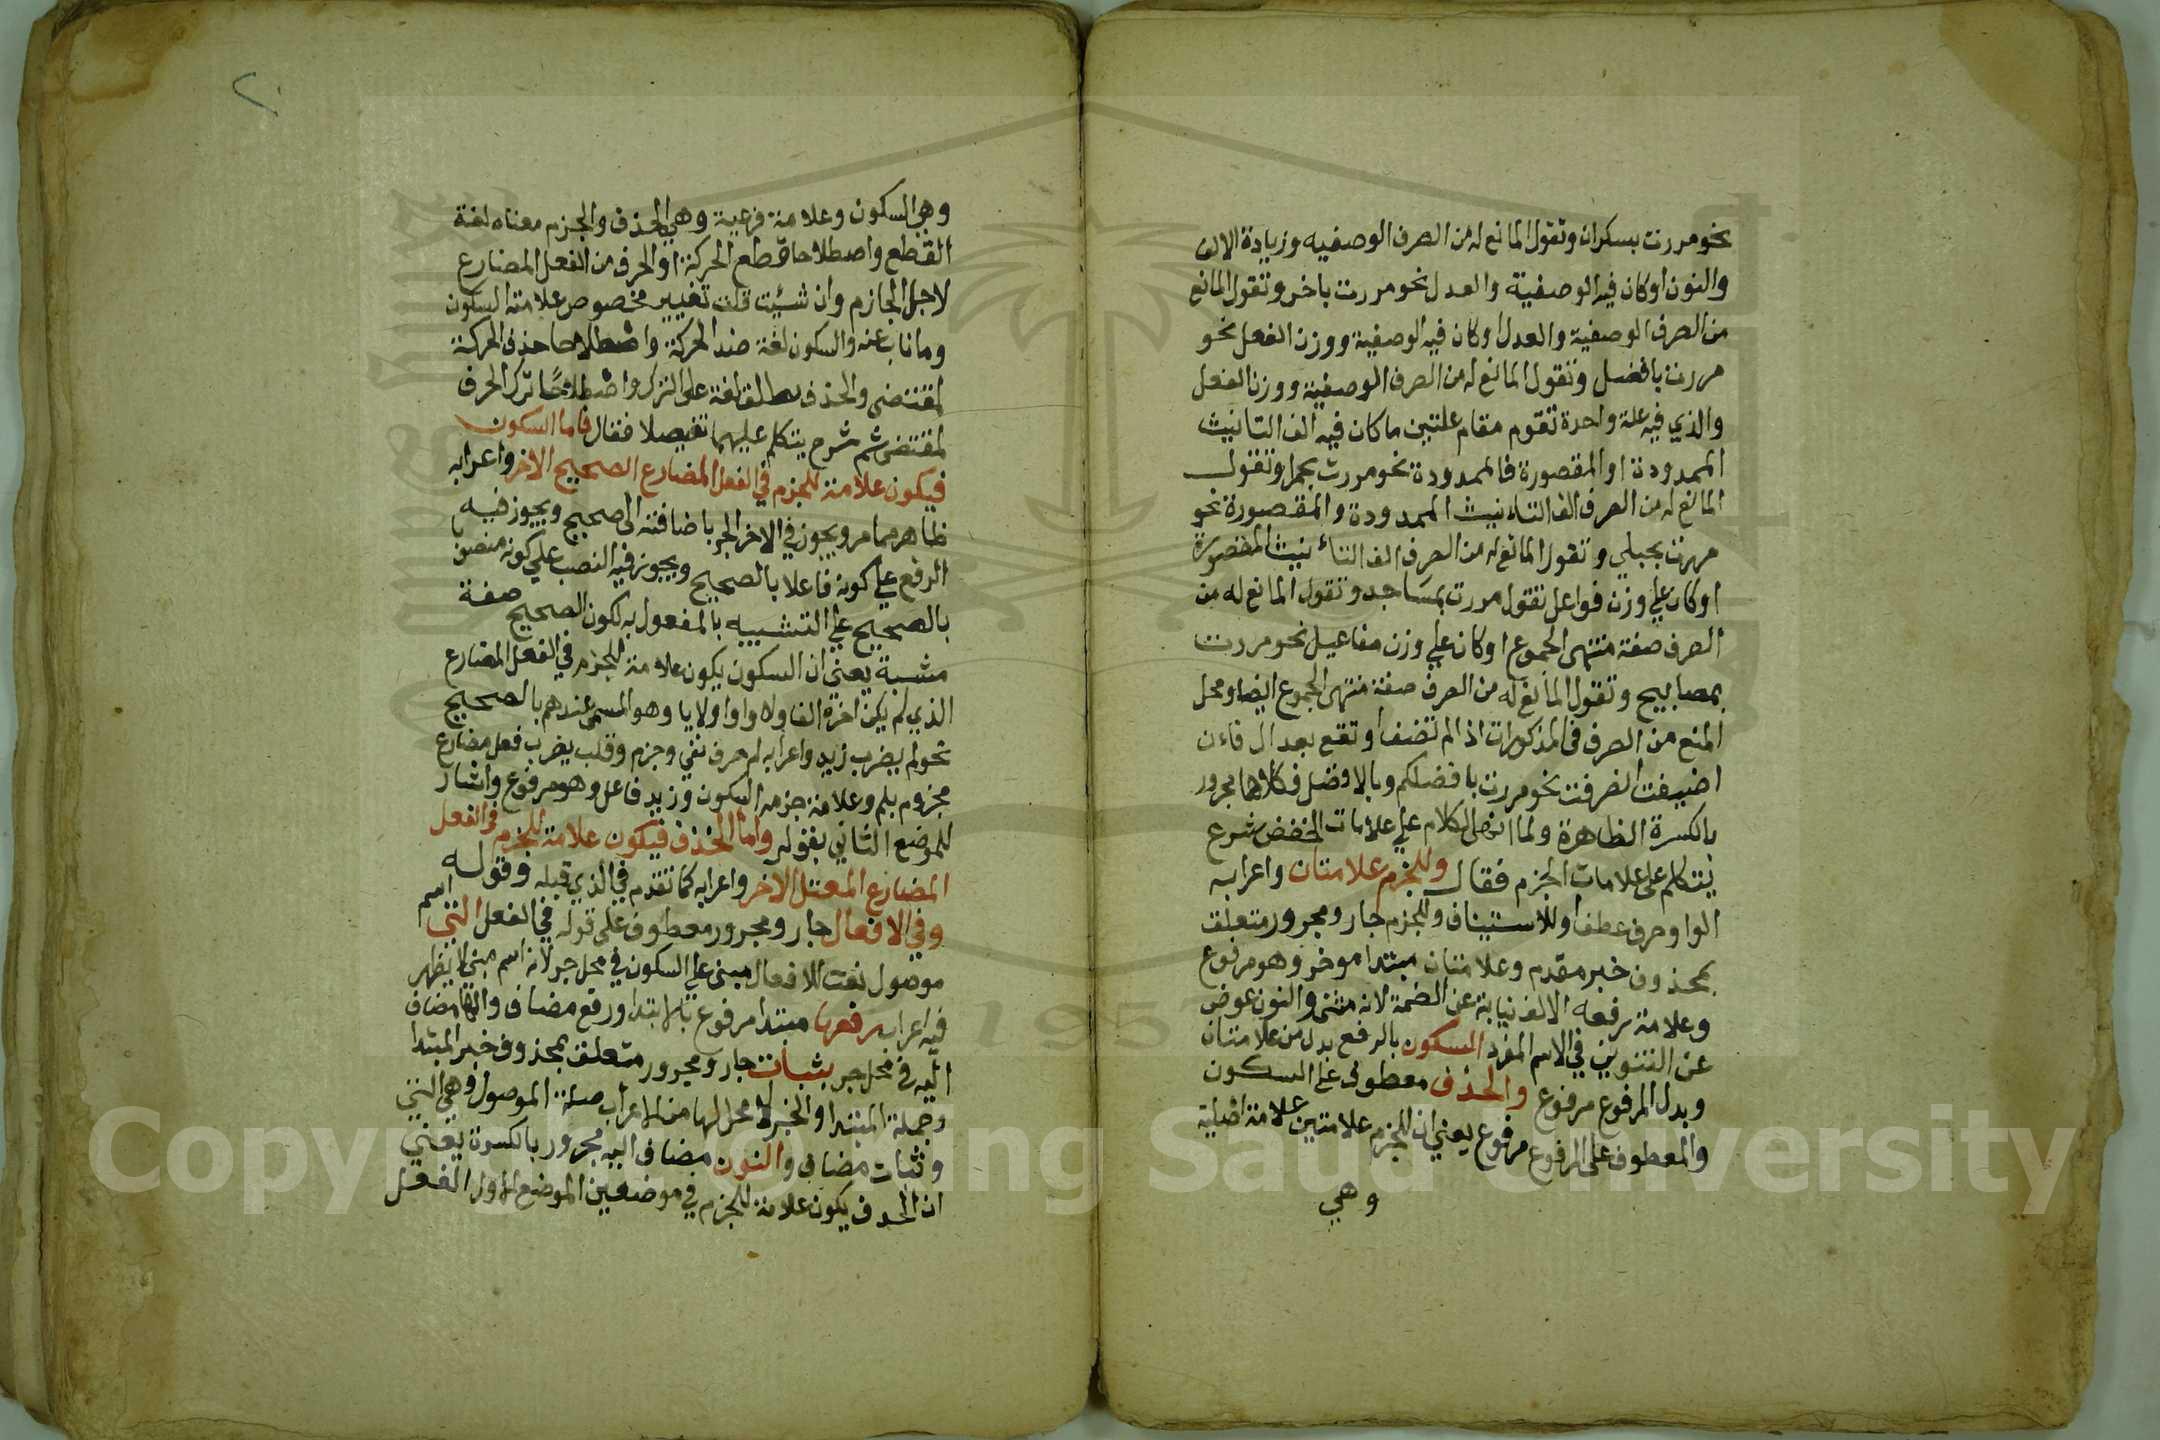 نحو مررت بسكران وتقول المانع له من الصرف الوصفيه وزيادة الالف
والنون او كان فيه الوصفية والعدل نحو مررت باخر وتقول المانع
من الصرف الوصفية والعدل او كان فيه الوصفية ووزن الفعل نحو
مررت بافضل وتقول المانع له من الصرف الوصفية ووزن الفعل
والذي فيه علة واحدة تقوم مقام علتين ما كان فيه الف التانيث
الممدودة او المقصورة فالممدودة نحو مررت بحمرا وتقول
المانع له من الصرف الف التاءنيث الممدودة والمقصورة نحو
مررت بحبلي وتقول المانع له من الصرف الف التاءنيث المقصورة
او كان علي وزن فواعل تقول مررت بمساجد وتقول المانع له من
الصرف صفة منتهى الجموع او كان علي وزن مفاعيل نحو مررت
بمصابيح وتقول المانع له من الصرف صفة منتهى الجموع ايضا ومحل
المنع من الصرف في المذكورات اذا لم تضف او تقع بعد ال فاءن
اضيفت انصرفت نحو مررت بافضلكم وبالافضل فكلاهما مجرور
بالكسرة الظاهرة ولما انهى الكلام علي علامات الخفض شرع
يتكلم على علامات الجزم فقال وللجزم علامتان واعرابه
الواو حرف عطف او للاستيناف وللجزم جار ومجرور متعلق
بمحذوف خبر مقدم وعلامتان مبتدا موخر وهو مرفوع
وعلامة رفعه الالف نيابة عن الضمة لانه مثنى والنون عوض
عن التنوين في الاسم المفرد السكون بالرفع بدل من علامتان
وبدل المرفوع مرفوع والحذف معطوف على السكون
والمعطوف على المرفوع مرفوع يعني ان للجزم علامتين علامة اصلية
وهي
٢٠
وهي السكون وعلامة فرعية وهي الحذف والجزم معناه لغة
القطع واصطلاحا قطع الحركة او الحرف من الفعل المضارع
لاجل الجازم وان شئيت قلت تغيير مخصوص علامته السكون
وما ناب عنه والسكون لغة ضد الحركة واصطلاحا حذف الحركة
لمقتضى والحذف يطلق لغة على الترك واصطلاحا ترك الحرف
لمقتضى ثم شرح يتكلم عليهما تفصيلا فقال فاما السكون
فيكون علامة للجزم في الفعل المضارع الصحيح الاخر واعرابه
ظاهر مما مر ويجوز في الاخر الجر باضافته الى صحيح ويجوز فيه
الرفع علي كونه فاعلا بالصحيح ويجوز فيه النصب علي كونه منصوبا
بالصحيح علي التشبيه بالمفعول به لكون الصحيح صفة
مشبة يعني ان السكون يكون علامة للجزم في الفعل المضارع
الذي لم يكن اخره الفا ولا واوا ولا يا وهو المسمى عندهم بالصحيح
نحو لم يضرب زيد واعرابه لم حرف نفي وجزم وقلب يضرب فعل مضارع
مجزوم بلم وعلامة جزمه السكون وزيد فاعل وهو مرفوع واشار
للموضع الثاني بقوله واما الحذف فيكون علامة للجزم في الفعل
المضارع المعتل الاخر واعرابه كما تقدم في الذي قبله وقوله
وفي الافعال جار ومجرور معطوف على قوله في الفعل التي اسم
موصول نعت للافعال مبنى علي السكون في محل جر لانه اسم مبني لا يظهر
فيه اعراب رفعها مبتدا مرفوع بالابتدا ورفع مضاف والها مضاف
اليه في محل جر بثبات جار ومجرور متعلق بمحذوف خبر المبتدا
وجملة المبتدا والخبر لا محل لها من الاعراب صلة الموصول وهي التي
وثبات مضاف والنون مضاف اليه مجرور بالكسرة يعني
ان الحذف يكون علامة للجزم في موضعين الموضع الاول الفعل
Copyright © King Saud University